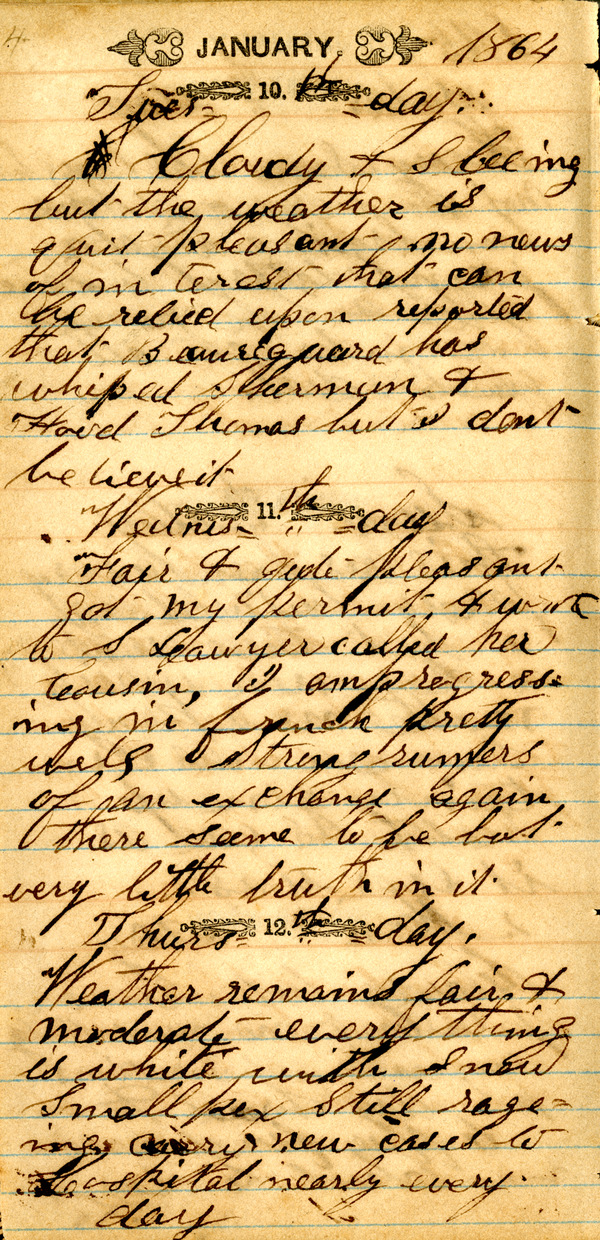 4.
JANUARY. 1864
Tues- 10. th =day.
Cloudy & Sleeing
but the weather is
quit pleasant no news
of in terest that can
be relied upon reported
that Beaureguard has
whiped Sherman &
Hood Thomas but I dont
believe it
Wednes- 11. th =day
Fair & quite pleasant
got my permit, & wrote
to S Sawyer called her
Cousin, I am progress-
ing in french pretty
well Strong rumers
of an exchange again
there seems to be but
very little truth in it
Thurs- 12. th =day.
Weather remains fair &
moderate every thing
is white with snow
Small pox Still rage=
ing carry new cases to
Hospital nearly every
day